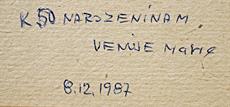 K 50 NAROZENINAM
VENUJE MARIE
8.12.1987